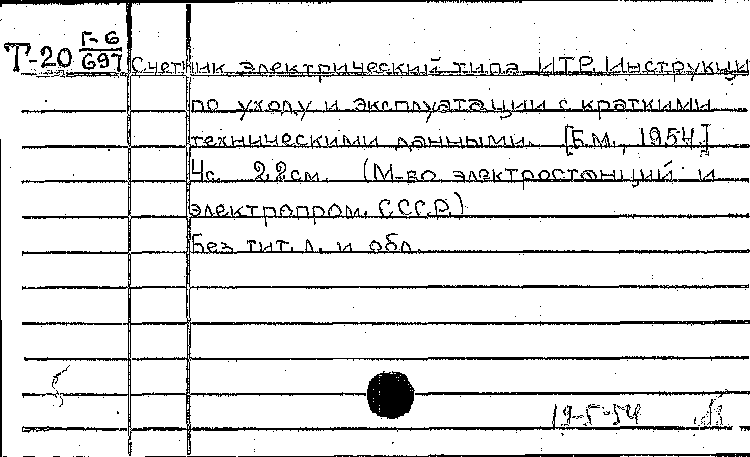 Т-20 Г-6/697 Счетчик электрический типа ИТР. Инструкци
по уходу и эксплуатации с краткими
техническими данными. [Б.м., 1954.]
4с. 22см. (М-во электростанций и
электропром. СССР.)
Без тит. л. и обл.
19-5-54